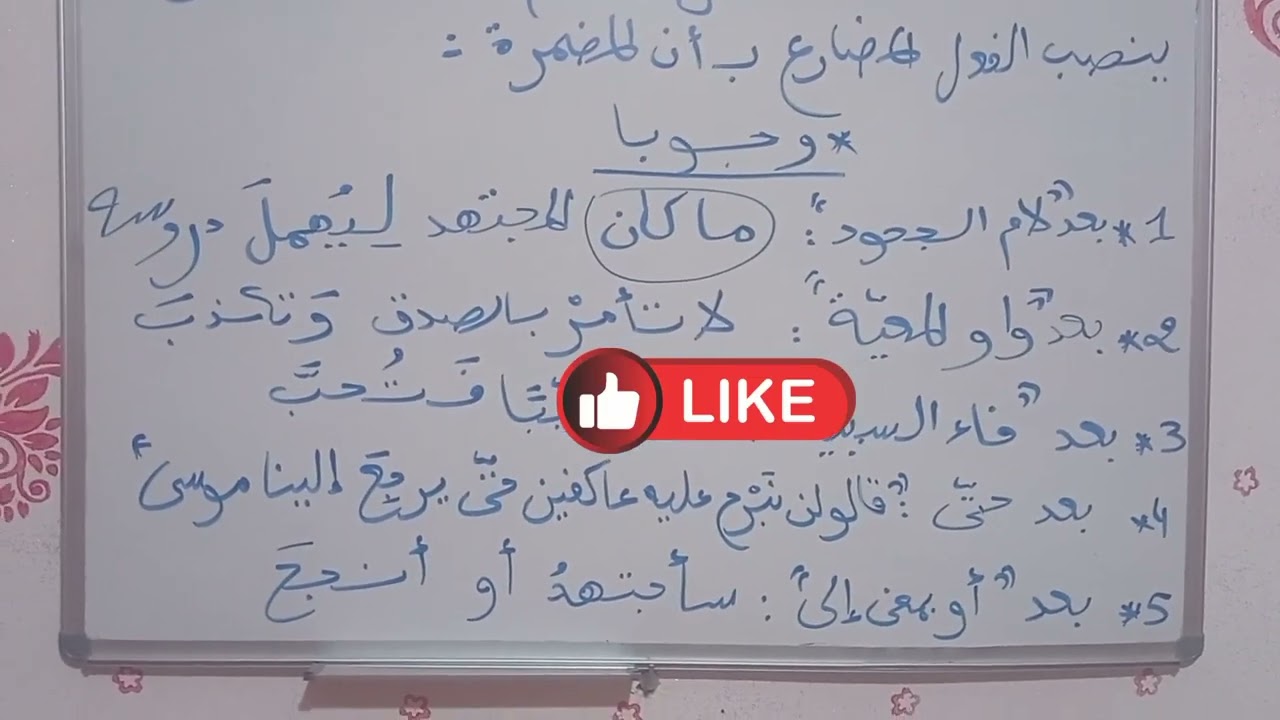 ينصب الفعل المضارع ب أن المضمرة :
* وجوبا
1* بعد "لام الجحود" : ما كان المجتهد لِيُهملَ دروسه
2* بعد "واو المعيّة" : لا تأمرْ بالصدق وَتكذبَ
3* بعد "فاء السببية فَتُحبَّ
LIKE
4* بعد حتّى : "قالو لن نبْرح عليه عاكفين حتّى يرجعَ إلينا موسى"
5* بعد "أو بمعنى إلى" : سأجتهدُ أو أنجحَ